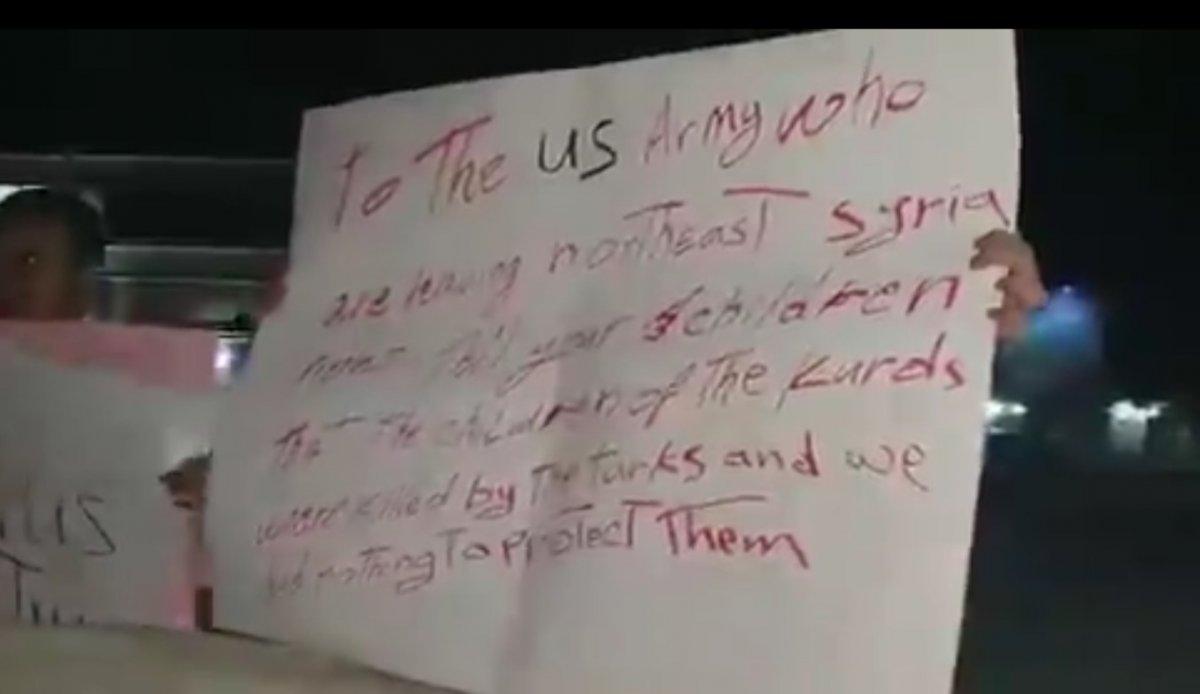 To The US Army who
are leaving northeast Syria
Tell your children
that The children of The Kurds
were killed by The turks and we
nothing To protect Them
US